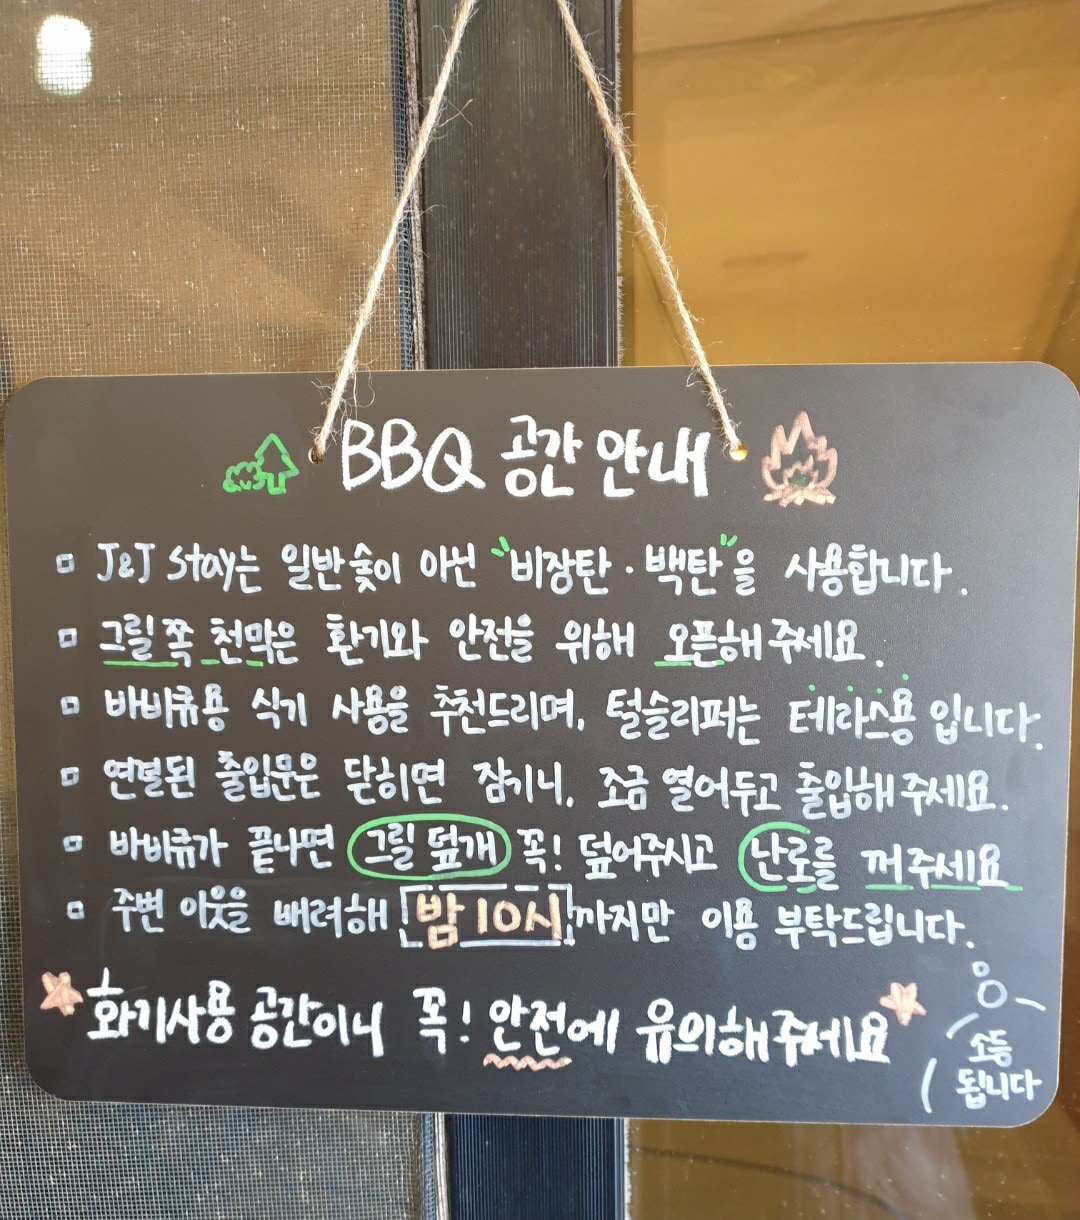 BBQ 공간 안내
J&J Stay는 일반숯이 아닌 "비장탄·백탄"을 사용합니다.
그릴 쪽 천막은 환기와 안전을 위해 오픈해주세요.
바비큐용 식기 사용을 추천드리며, 털슬리퍼는 테라스용 입니다.
연결된 출입문은 닫히면 잠기니, 조금 열어두고 출입해주세요.
바비큐가 끝나면 그릴 덮개 꼭! 덮어주시고 난로를 꺼주세요
주변 이웃을 배려해 밤 10시까지만 이용 부탁드립니다.
화기사용 공간이니 꼭! 안전에 유의해주세요
소등
됩니다